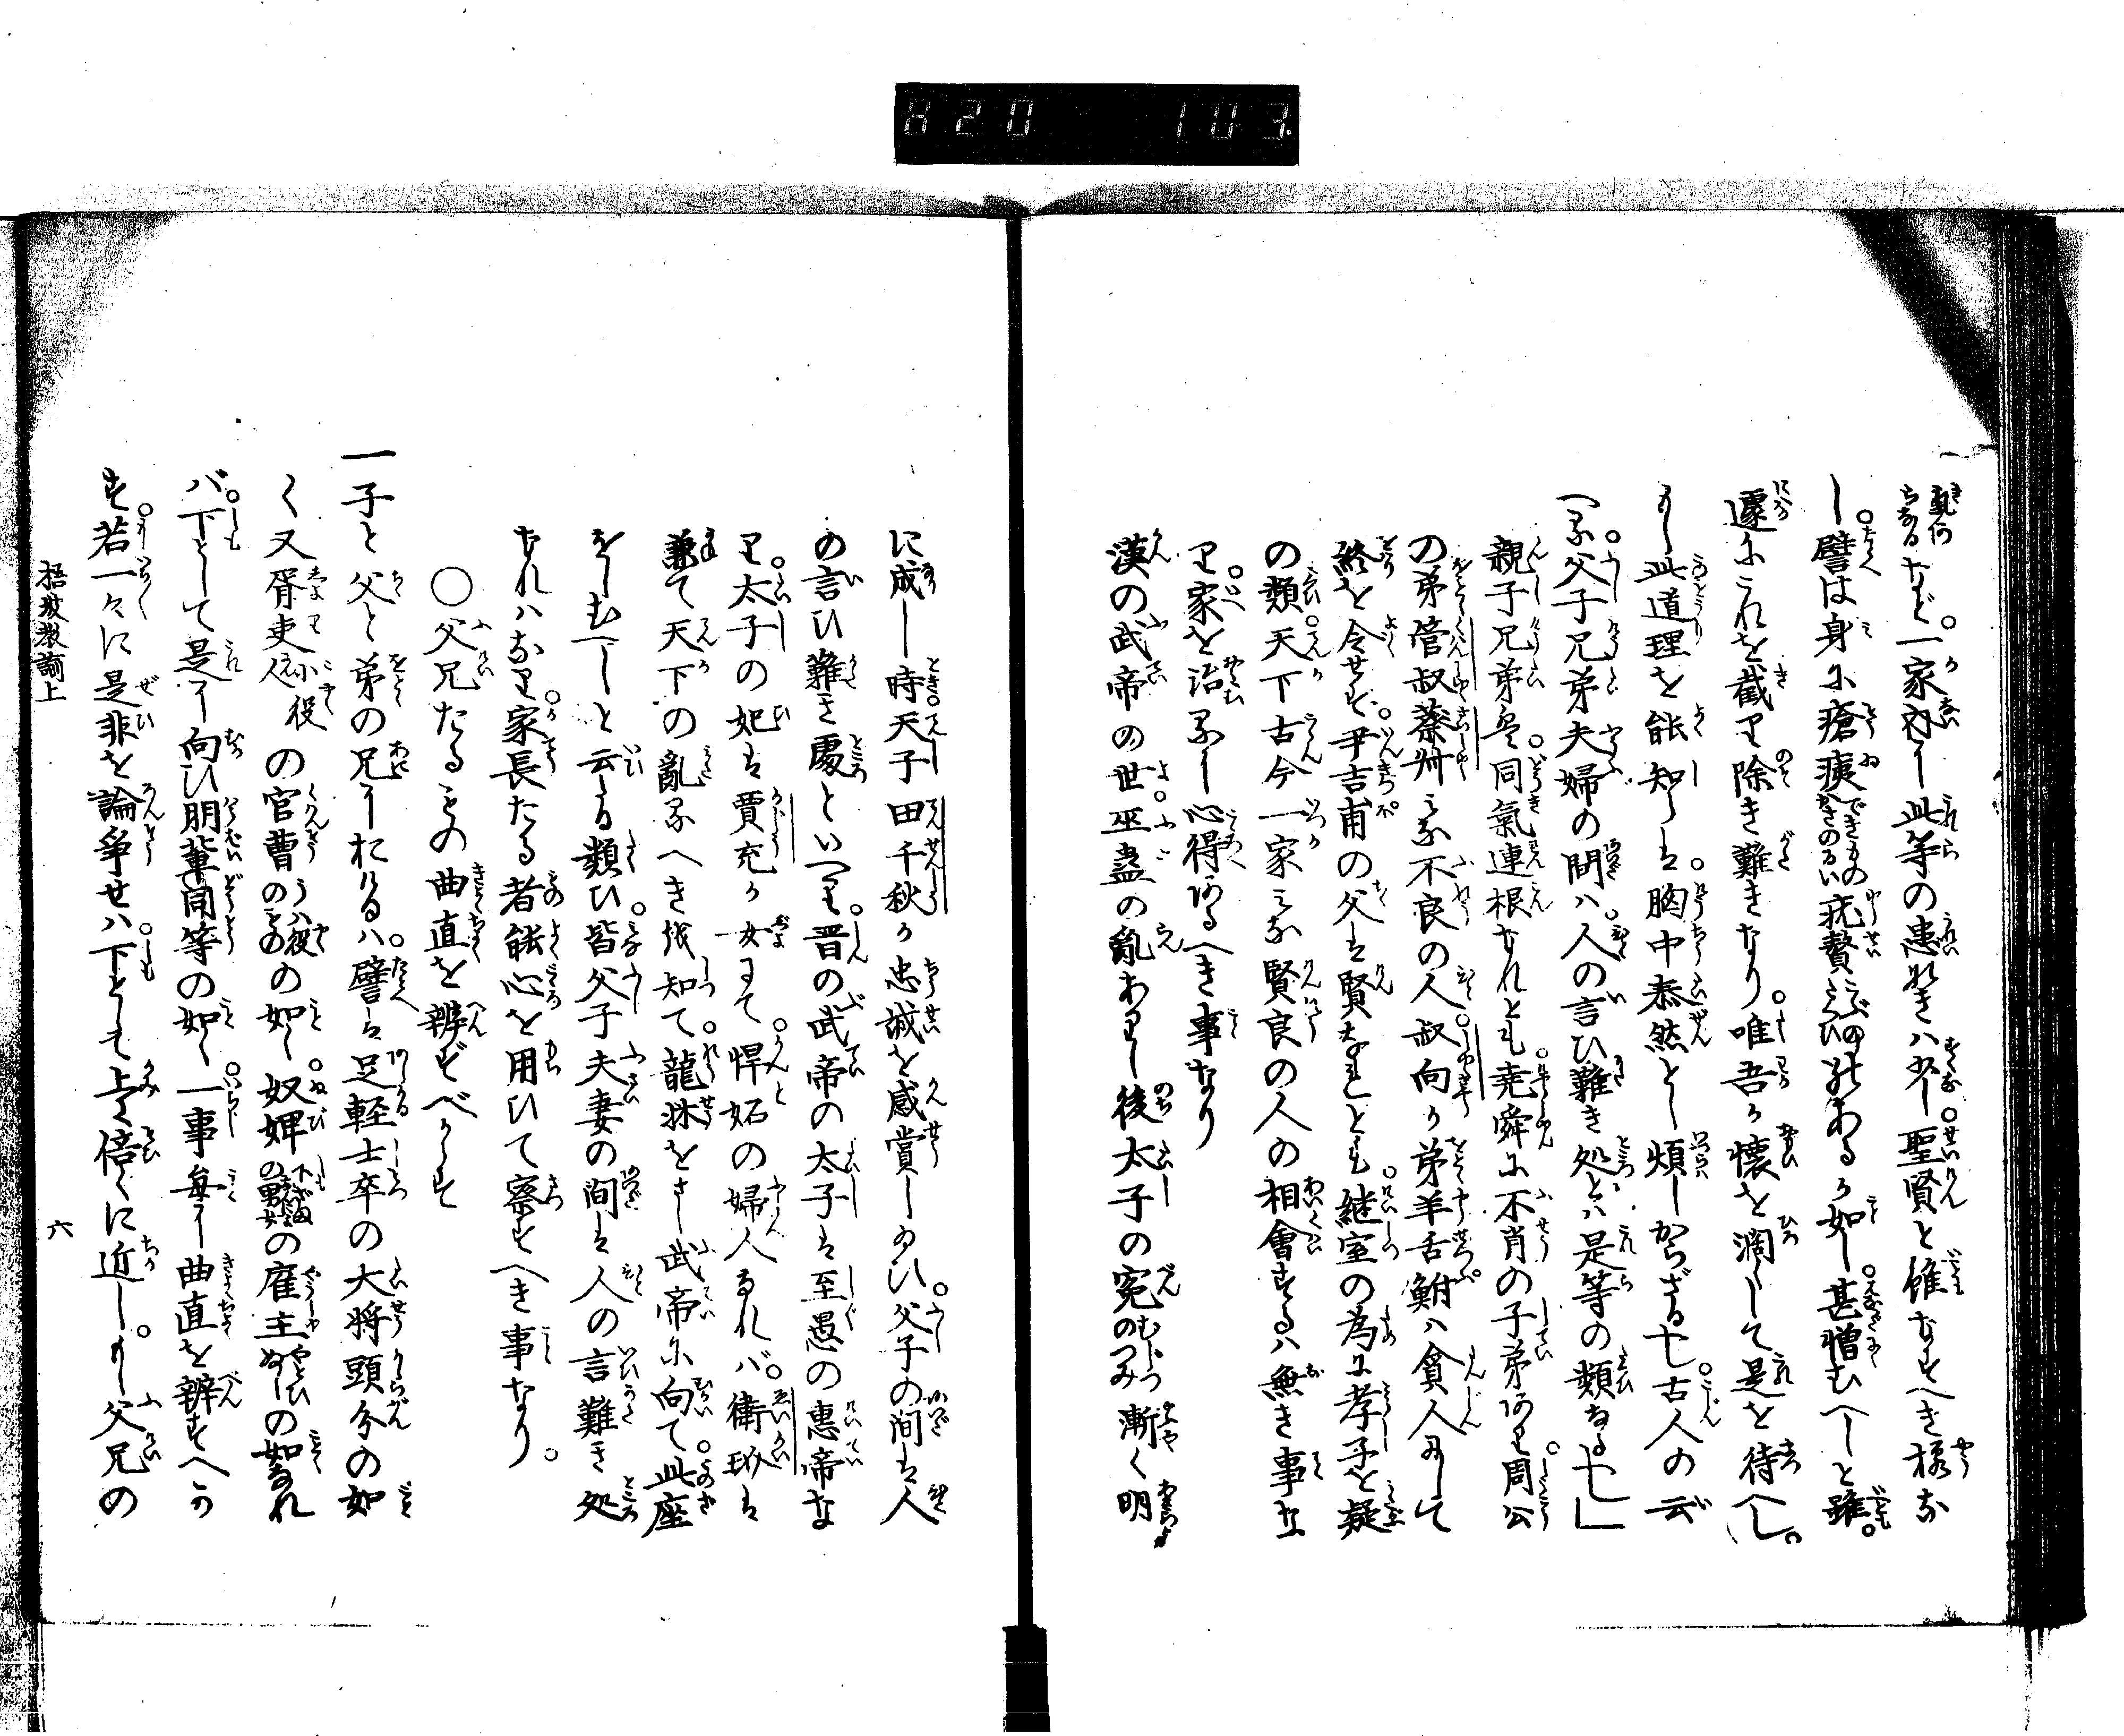 820 103.
など。一家内に此等の患難ハ少し。聖賢と雖なすへき様な
し。譬は身に瘡痍できもの疣贅こぶのあるか如し。甚憎むへしと雖。
遽にこれを截り除き難きなり。唯吾か懐を濶くして是を待へし。
もし此道理を能知らは。胸中泰然とし煩しからざる也。古人の云
へる。父子兄弟夫婦の間ハ。人の言ひ難き処とハ是等の類なる也」
親子兄弟は。同氣連根なれとも。堯舜に不肖の子弟あり。周公
の弟管叔蔡叔みな不良の人。叔向か弟羊舌鮒ハ貪人にして
終を令せす。尹吉甫の父は賢なれとも。継室の為に孝子を疑
の類。天下古今一家みな賢良の人の相會するハ無き事な
り。家を治るに心得あるへき事なり
漢の武帝の世。巫蠱の亂あり後太子の寃むじつのつみ漸く明
に成し時。天子田千秋か忠誠を感賞し給ひ。父子の间は人
の言ひ難き處といへり。晋の武帝の太子は至愚の惠帝な
り。太子の妃は賈充か女にて。悍妬の婦人なれバ。衛瓘は
兼て天下の亂るへき機知て。龍牀をさし武帝に向て。此座
をしむべしと云る類ひ。皆父子夫妻の间は人の言難き処
なれハなり。家長たる者能心を用ひて察すへき事なり。
〇父兄たるもの曲直を辨ずべからす
一子と父と弟の兄におけるハ。譬は足軽士卒の大将頭分の如
く又胥吏小役人の官曹うハ役のものの如し。奴婢下ざまの男女の雇主やとひぬしの如なれ
バ。下として是に向ひ朋輩同等の如く。一事毎に曲直を辨すへか
す。若一々に是非を論爭せハ。下として上に倍くに近し。もし父兄の
捂坡教諭上
六